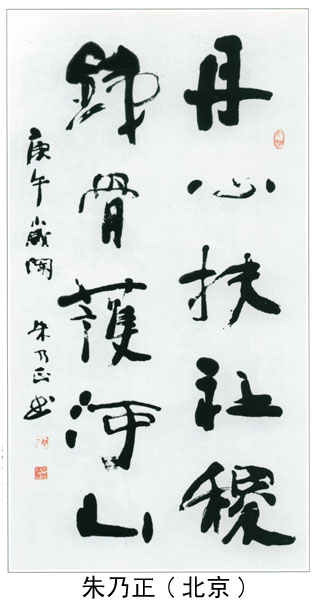 丹心扶社稷
鉄骨護河山
庚午歲闌
朱乃正书
朱乃正（北京）